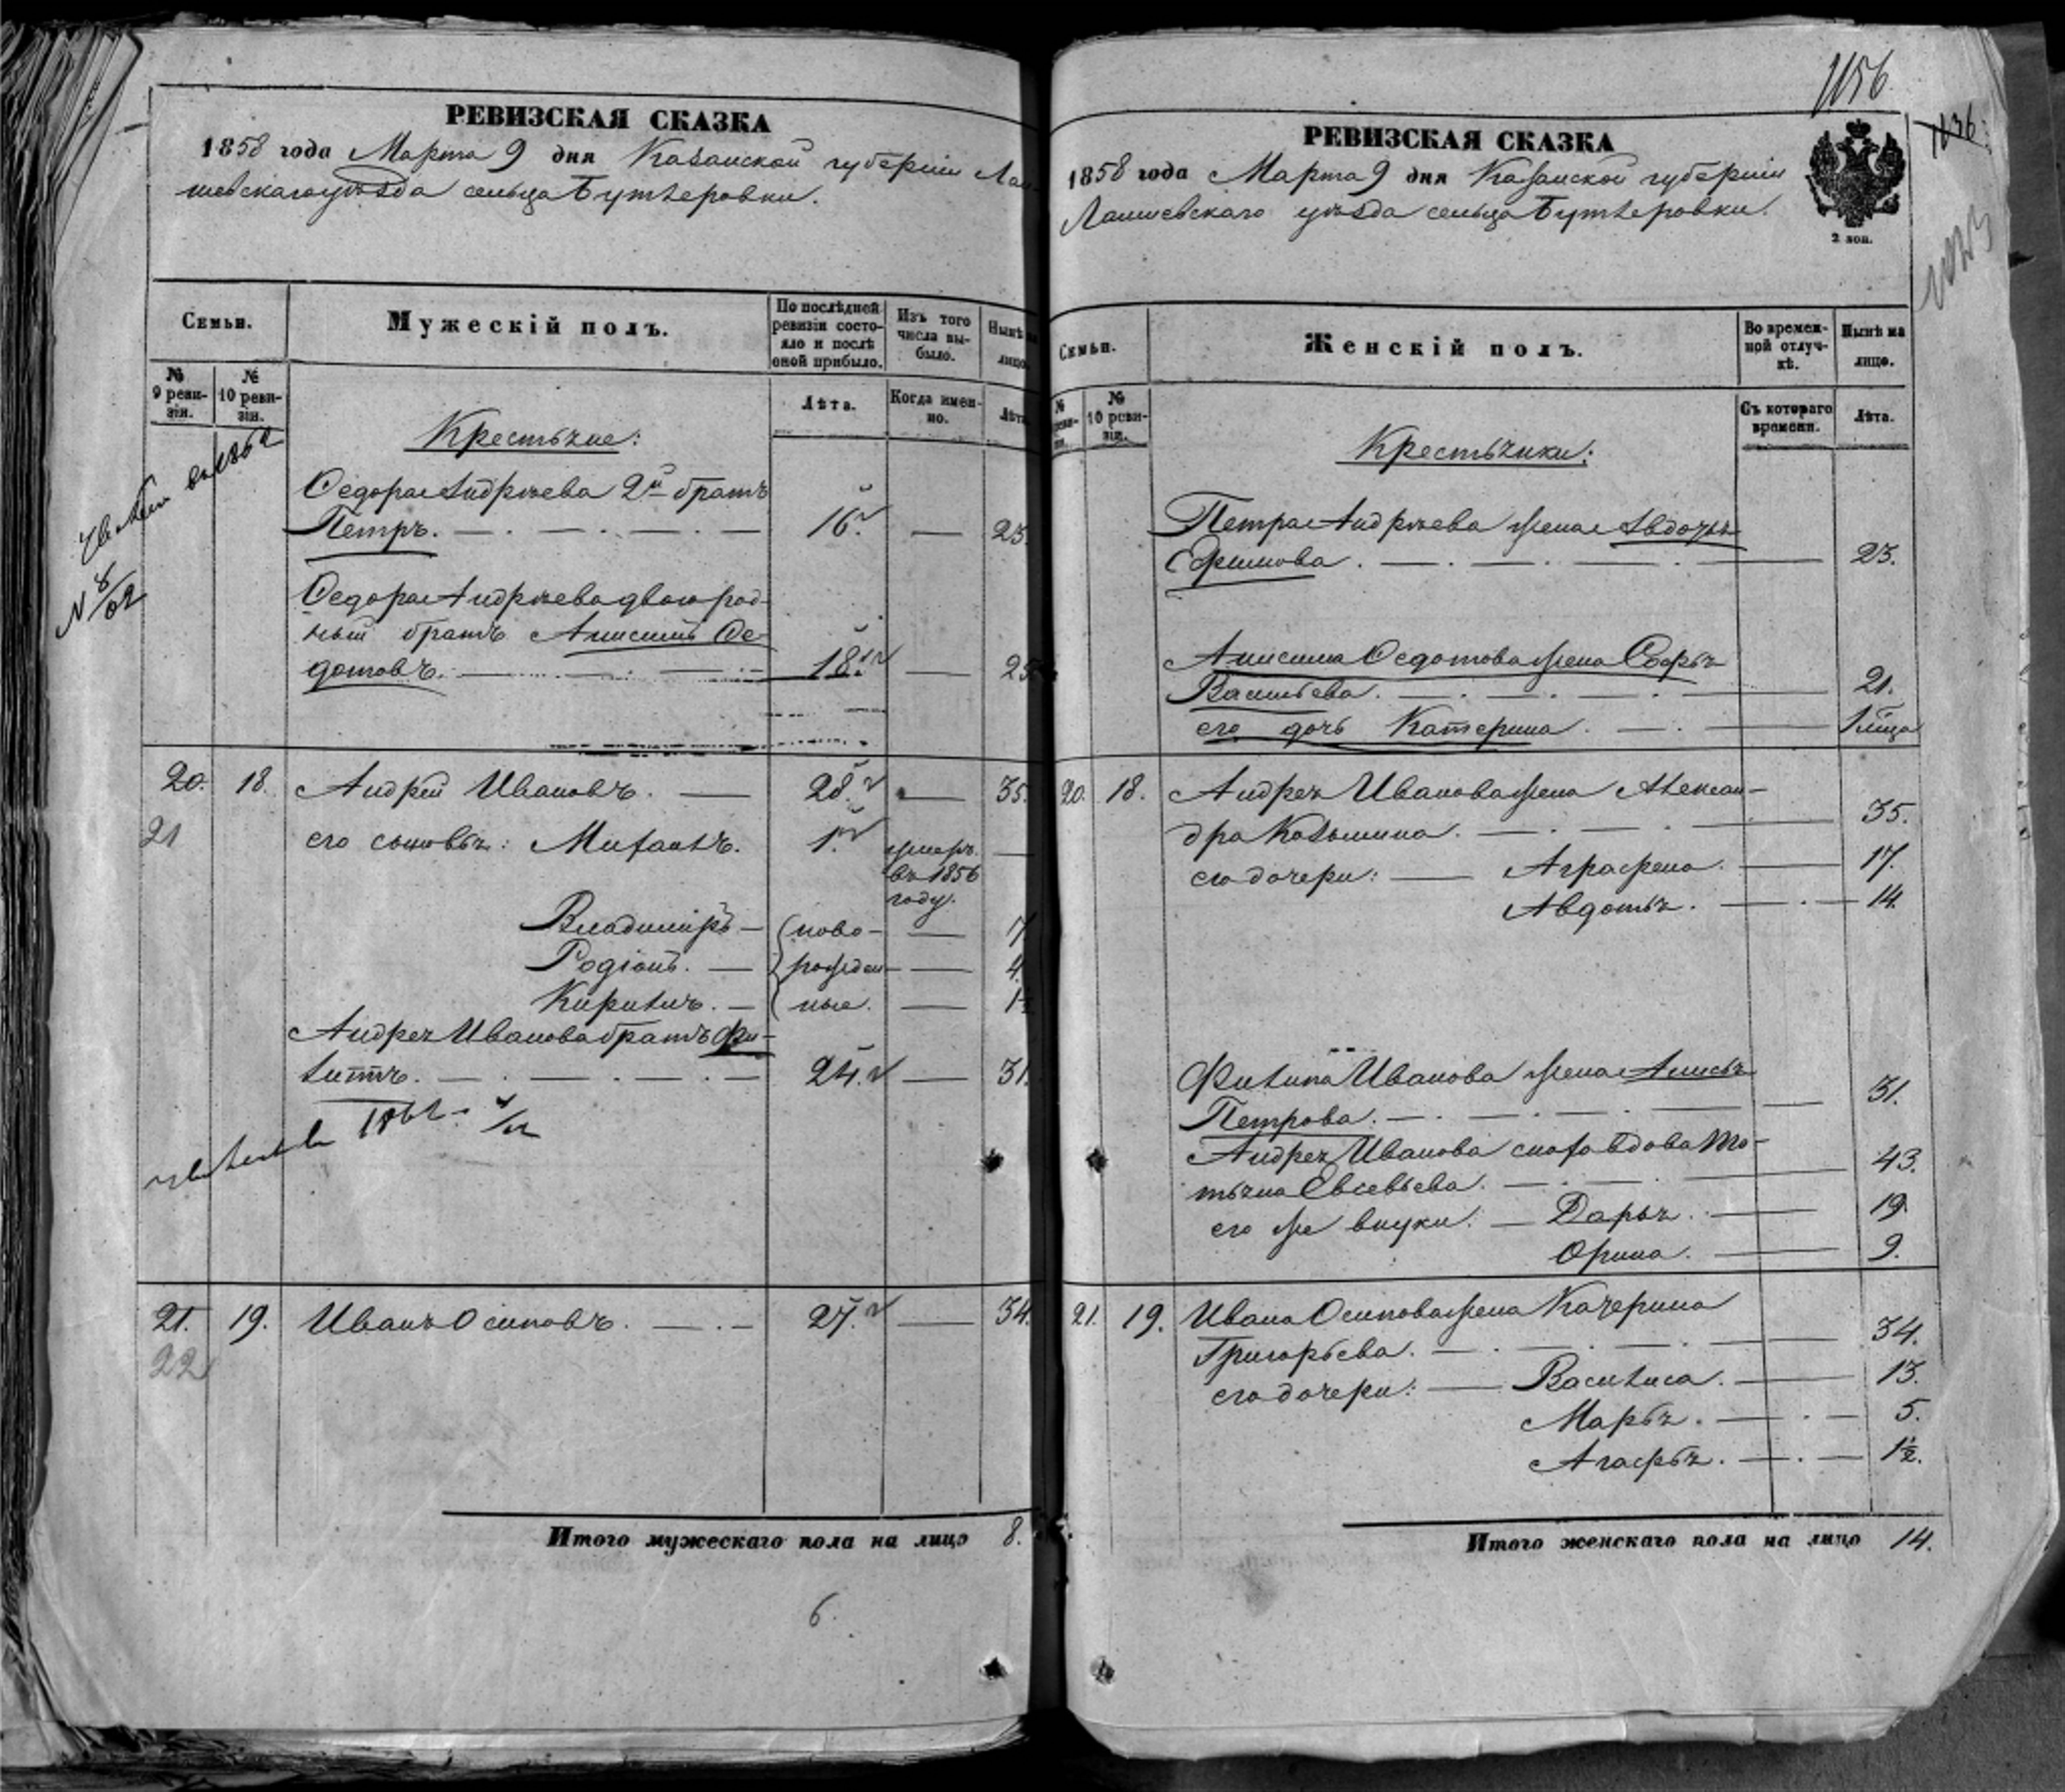 РЕВИЗСКАЯ СКАЗКА
1858 года Марта 9 дня Казанской губерніи Лаи-
шевскаго уѣзда сельца Бутлеровки.
Семьи.
Мужескій полъ.
По послѣдней ревизіи состояло и послѣ оной прибыло.
Изъ того числа выбыло.
Нынѣ на лицо.
№ 9 ревизіи.
№ 10 ревизіи.
Лѣта.
Когда именно.
Лѣта
Крестьяне:
Федора Андрѣева 2й братъ
Петръ. 16. — 23.
Федора Андрѣева двоюрод-
ный братъ Анисимъ Фе-
дотовъ. 18. — 25
№ 8/62
20. 18. Андрей Ивановъ. — 28. — 35.
21 его сыновья: Михаилъ. 1. умеръ —
въ 1856
году.
Владиміръ — ново- — 7
Родіонъ. — рожден- — 4
Кирилъ. — ные. — 1
Андрея Иванова братъ Фи-
липпъ. 24. — 31.
1862
21. 19. Иванъ Осиповъ. 27. — 34.
22
Итого мужескаго пола на лицо 8.
6.
1156
1136
РЕВИЗСКАЯ СКАЗКА
1858 года Марта 9 дня Казанской губерніи
Лаишевскаго уѣзда сельца Бутлеровки.
2 коп.
Семьи.
Женскій полъ.
Во временной отлучкѣ.
Нынѣ на лицо.
№ 10 ревизіи.
Съ котораго времени.
Лѣта.
Крестьянки:
Петра Андрѣева жена Авдотья
Ефимова. 23.
Анисима Федотова жена Софья
Васильева. 21.
его дочь Катерина. —
20. 18. Андрея Иванова жена Алексан-
дра Козьмина. 35.
его дочери: — Аграфена. — 17.
Авдотья. — 14.
Филипа Иванова жена Анисья
Петрова. 31.
Андрея Иванова сноха вдова Та-
тьяна Евсевьева. 43.
его же внуки: — Дарья. — 19.
Орина. — 9.
21. 19. Ивана Осипова жена Катерина
Григорьева. 34.
его дочери: — Василиса. — 13.
Марья. — 5.
Агафья. — 1½.
Итого женскаго пола на лицо 14.